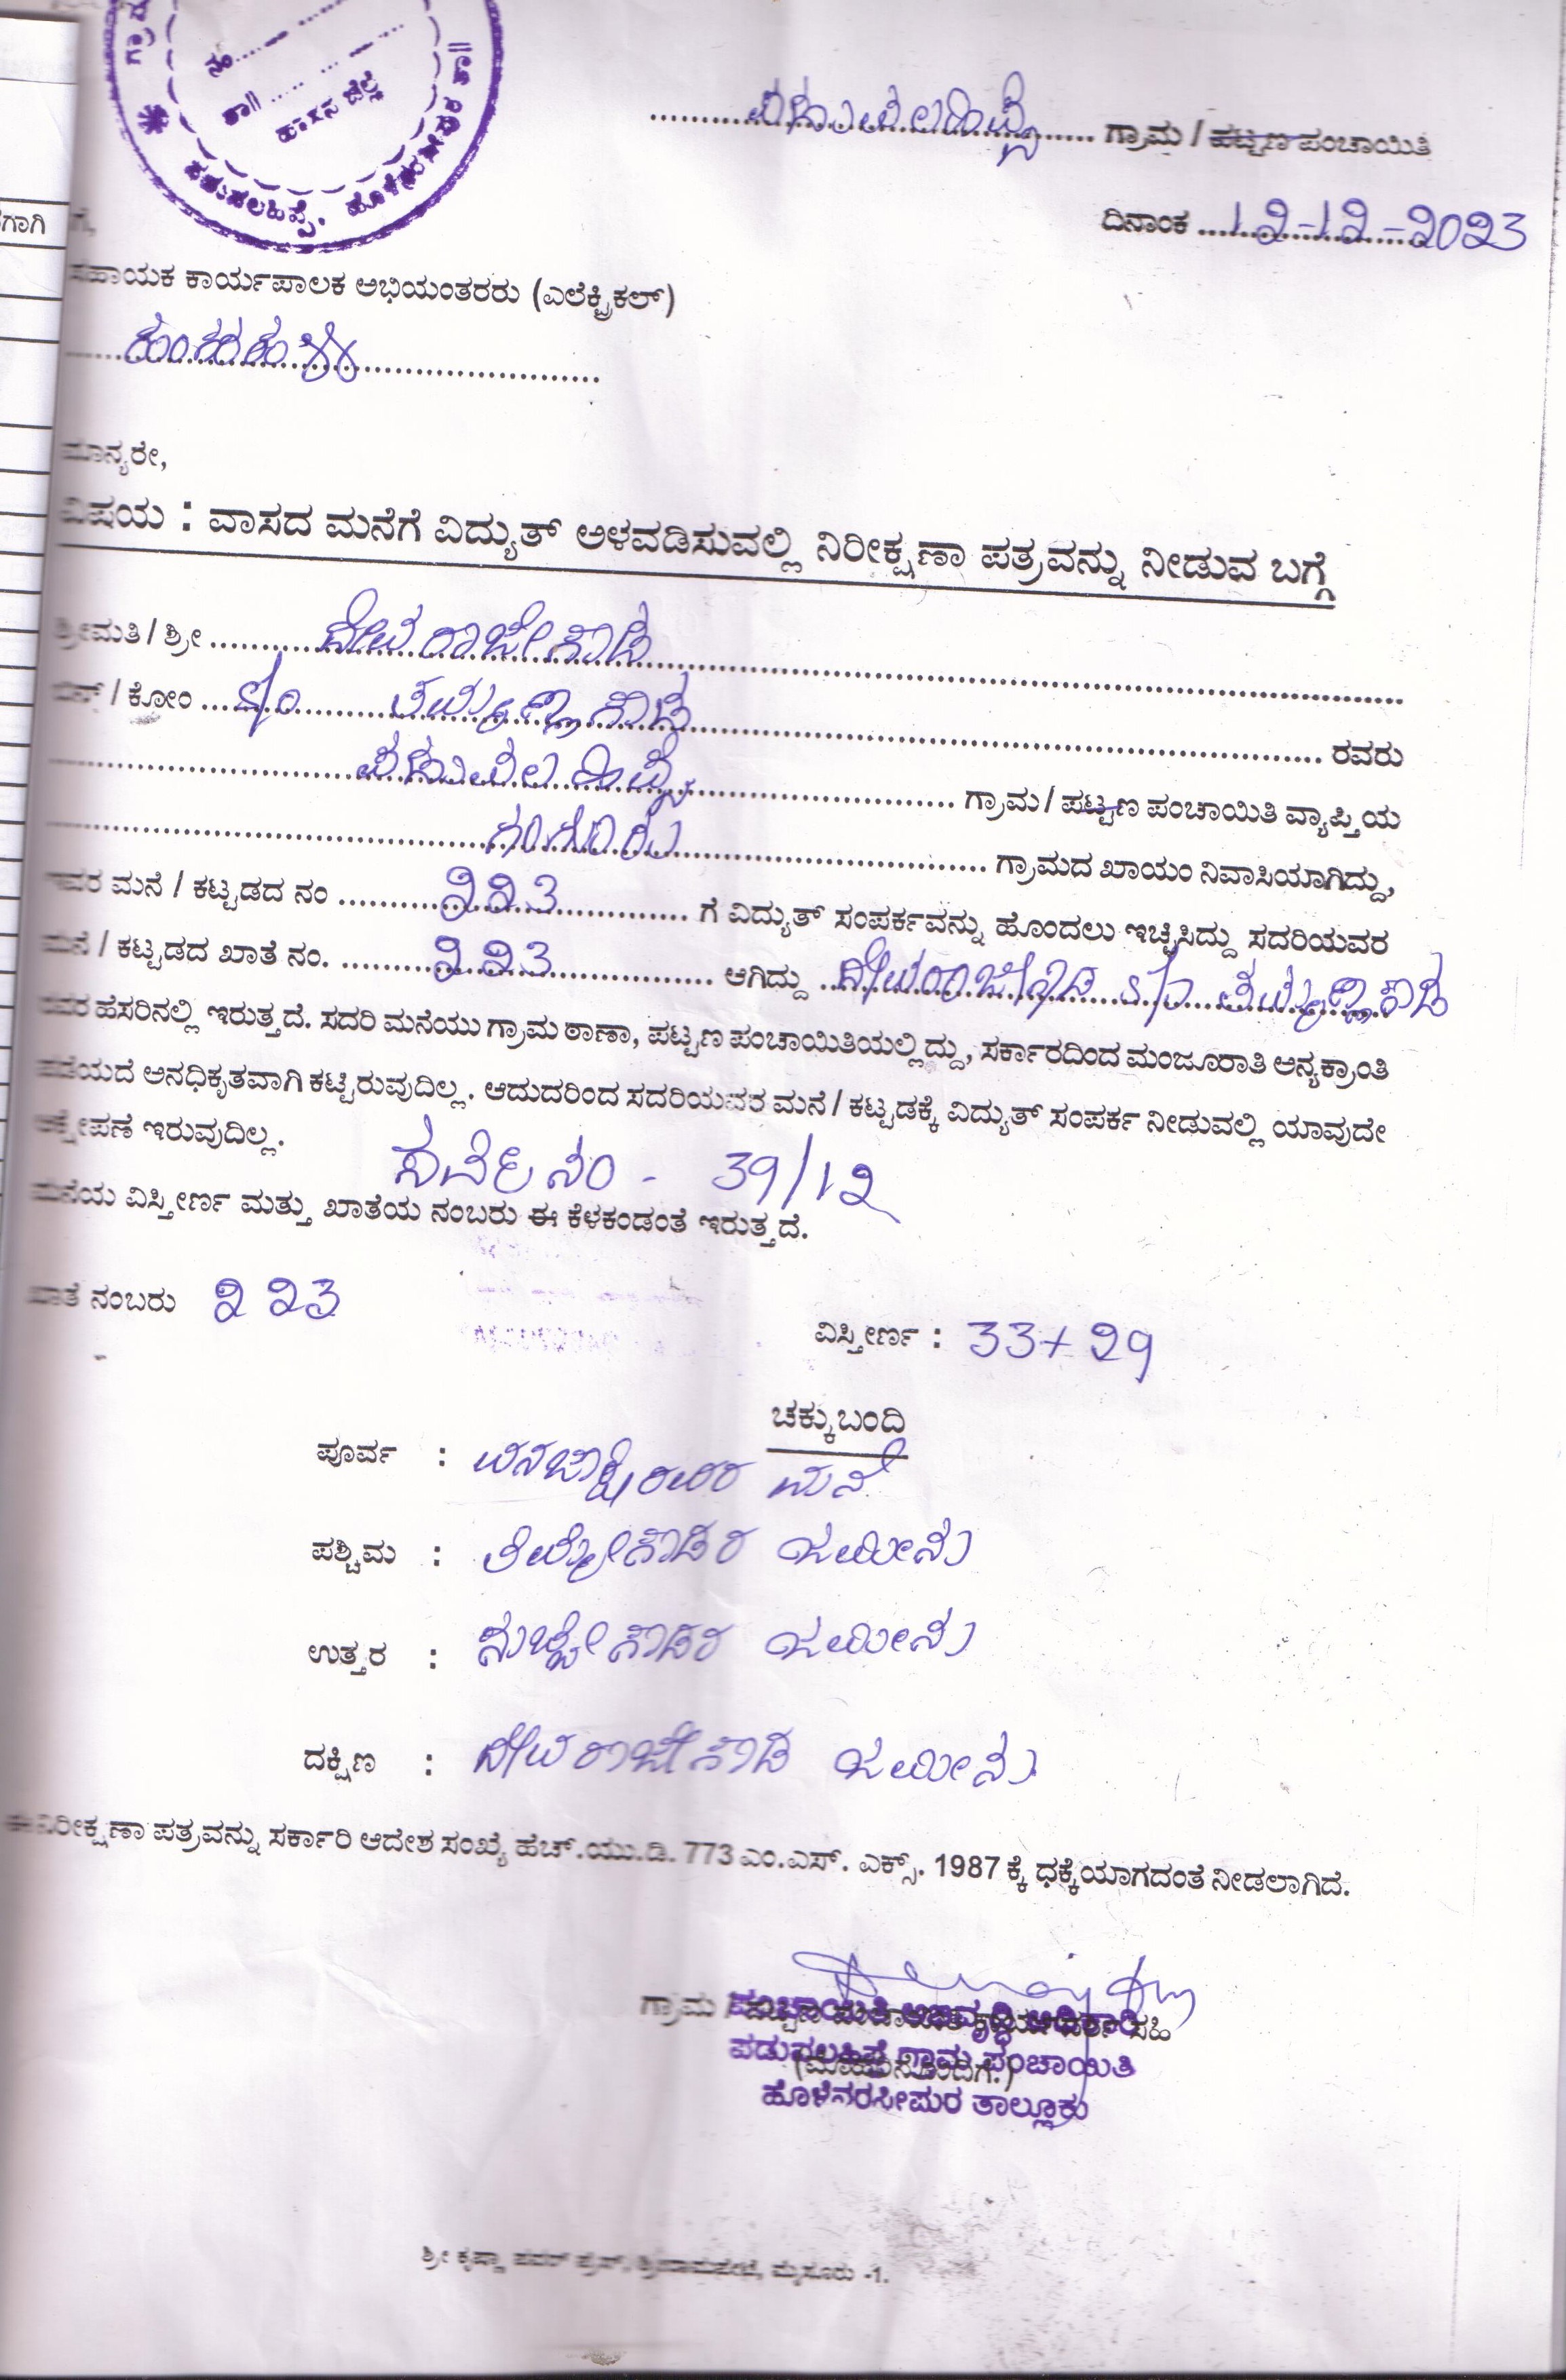 ನಂ.....
ತಾ|| .....
ಹಾಸನ ಜಿಲ್ಲೆ
ಪಡುವಲಹಿಪ್ಪೆ, ಹೊಳೆನರಸೀಪುರ ತಾ||
ಪಡುವಲಹಿಪ್ಪೆ ಗ್ರಾಮ / ಪಟ್ಟಣ ಪಂಚಾಯಿತಿ
ದಿನಾಂಕ 12-12-2023
ಗೆ,
ಸಹಾಯಕ ಕಾರ್ಯಪಾಲಕ ಅಭಿಯಂತರರು (ಎಲೆಕ್ಟ್ರಿಕಲ್)
ಮಾನ್ಯರೇ,
ವಿಷಯ : ವಾಸದ ಮನೆಗೆ ವಿದ್ಯುತ್ ಅಳವಡಿಸುವಲ್ಲಿ ನಿರೀಕ್ಷಣಾ ಪತ್ರವನ್ನು ನೀಡುವ ಬಗ್ಗೆ
ಶ್ರೀಮತಿ / ಶ್ರೀ ದೇವರಾಜೇಗೌಡ
ಬಿನ್ / ಕೋಂ S/o ತಮ್ಮಣ್ಣಗೌಡ ರವರು
ಪಡುವಲಹಿಪ್ಪೆ ಗ್ರಾಮ / ಪಟ್ಟಣ ಪಂಚಾಯಿತಿ ವ್ಯಾಪ್ತಿಯ
ಗಂಗೂರು ಗ್ರಾಮದ ಖಾಯಂ ನಿವಾಸಿಯಾಗಿದ್ದು,
ಇವರ ಮನೆ / ಕಟ್ಟಡದ ನಂ 223 ಗೆ ವಿದ್ಯುತ್ ಸಂಪರ್ಕವನ್ನು ಹೊಂದಲು ಇಚ್ಛಿಸಿದ್ದು ಸದರಿಯವರ
ಮನೆ / ಕಟ್ಟಡದ ಖಾತೆ ನಂ. 223 ಆಗಿದ್ದು ದೇವರಾಜೇಗೌಡ S/o ತಮ್ಮಣ್ಣಗೌಡ
ರವರ ಹೆಸರಿನಲ್ಲಿ ಇರುತ್ತದೆ. ಸದರಿ ಮನೆಯು ಗ್ರಾಮ ಠಾಣಾ, ಪಟ್ಟಣ ಪಂಚಾಯಿತಿಯಲ್ಲಿದ್ದು, ಸರ್ಕಾರದಿಂದ ಮಂಜೂರಾತಿ ಅನ್ಯಕ್ರಾಂತಿ
ಪಡೆಯದೆ ಅನಧಿಕೃತವಾಗಿ ಕಟ್ಟಿರುವುದಿಲ್ಲ. ಆದುದರಿಂದ ಸದರಿಯವರ ಮನೆ / ಕಟ್ಟಡಕ್ಕೆ ವಿದ್ಯುತ್ ಸಂಪರ್ಕ ನೀಡುವಲ್ಲಿ ಯಾವುದೇ
ಆಕ್ಷೇಪಣೆ ಇರುವುದಿಲ್ಲ.
ಸರ್ವೆ ನಂ - 39/12
ಮನೆಯ ವಿಸ್ತೀರ್ಣ ಮತ್ತು ಖಾತೆಯ ನಂಬರು ಈ ಕೆಳಕಂಡಂತೆ ಇರುತ್ತದೆ.
ಖಾತೆ ನಂಬರು 223
ವಿಸ್ತೀರ್ಣ : 33+29
ಚಕ್ಕುಬಂದಿ
ಪೂರ್ವ : ವನಜಾಕ್ಷಿರವರ ಮನೆ
ಪಶ್ಚಿಮ : ತಿಮ್ಮೇಗೌಡರ ಜಮೀನು
ಉತ್ತರ : ಸುಬ್ಬೇಗೌಡರ ಜಮೀನು
ದಕ್ಷಿಣ : ದೇವರಾಜೇಗೌಡ ಜಮೀನು
ಈ ನಿರೀಕ್ಷಣಾ ಪತ್ರವನ್ನು ಸರ್ಕಾರಿ ಆದೇಶ ಸಂಖ್ಯೆ ಹೆಚ್.ಯು.ಡಿ. 773 ಎಂ.ಎಸ್. ಎಕ್ಸ್. 1987 ಕ್ಕೆ ಧಕ್ಕೆಯಾಗದಂತೆ ನೀಡಲಾಗಿದೆ.
ಗ್ರಾಮ / ಪಟ್ಟಣ ಪಂಚಾಯಿತಿ ಸಹಿ
ಪಂಚಾಯಿತಿ ಅಭಿವೃದ್ಧಿ ಅಧಿಕಾರಿ
ಪಡುವಲಹಿಪ್ಪೆ ಗ್ರಾಮ ಪಂಚಾಯಿತಿ
(ಮೊಹರಿನೊಂದಿಗೆ.)
ಹೊಳೆನರಸೀಪುರ ತಾಲ್ಲೂಕು
ಶ್ರೀ ಕೃಷ್ಣಾ ಪವರ್ ಪ್ರೆಸ್, ಶ್ರೀರಾಮಪೇಟೆ, ಮೈಸೂರು -1.